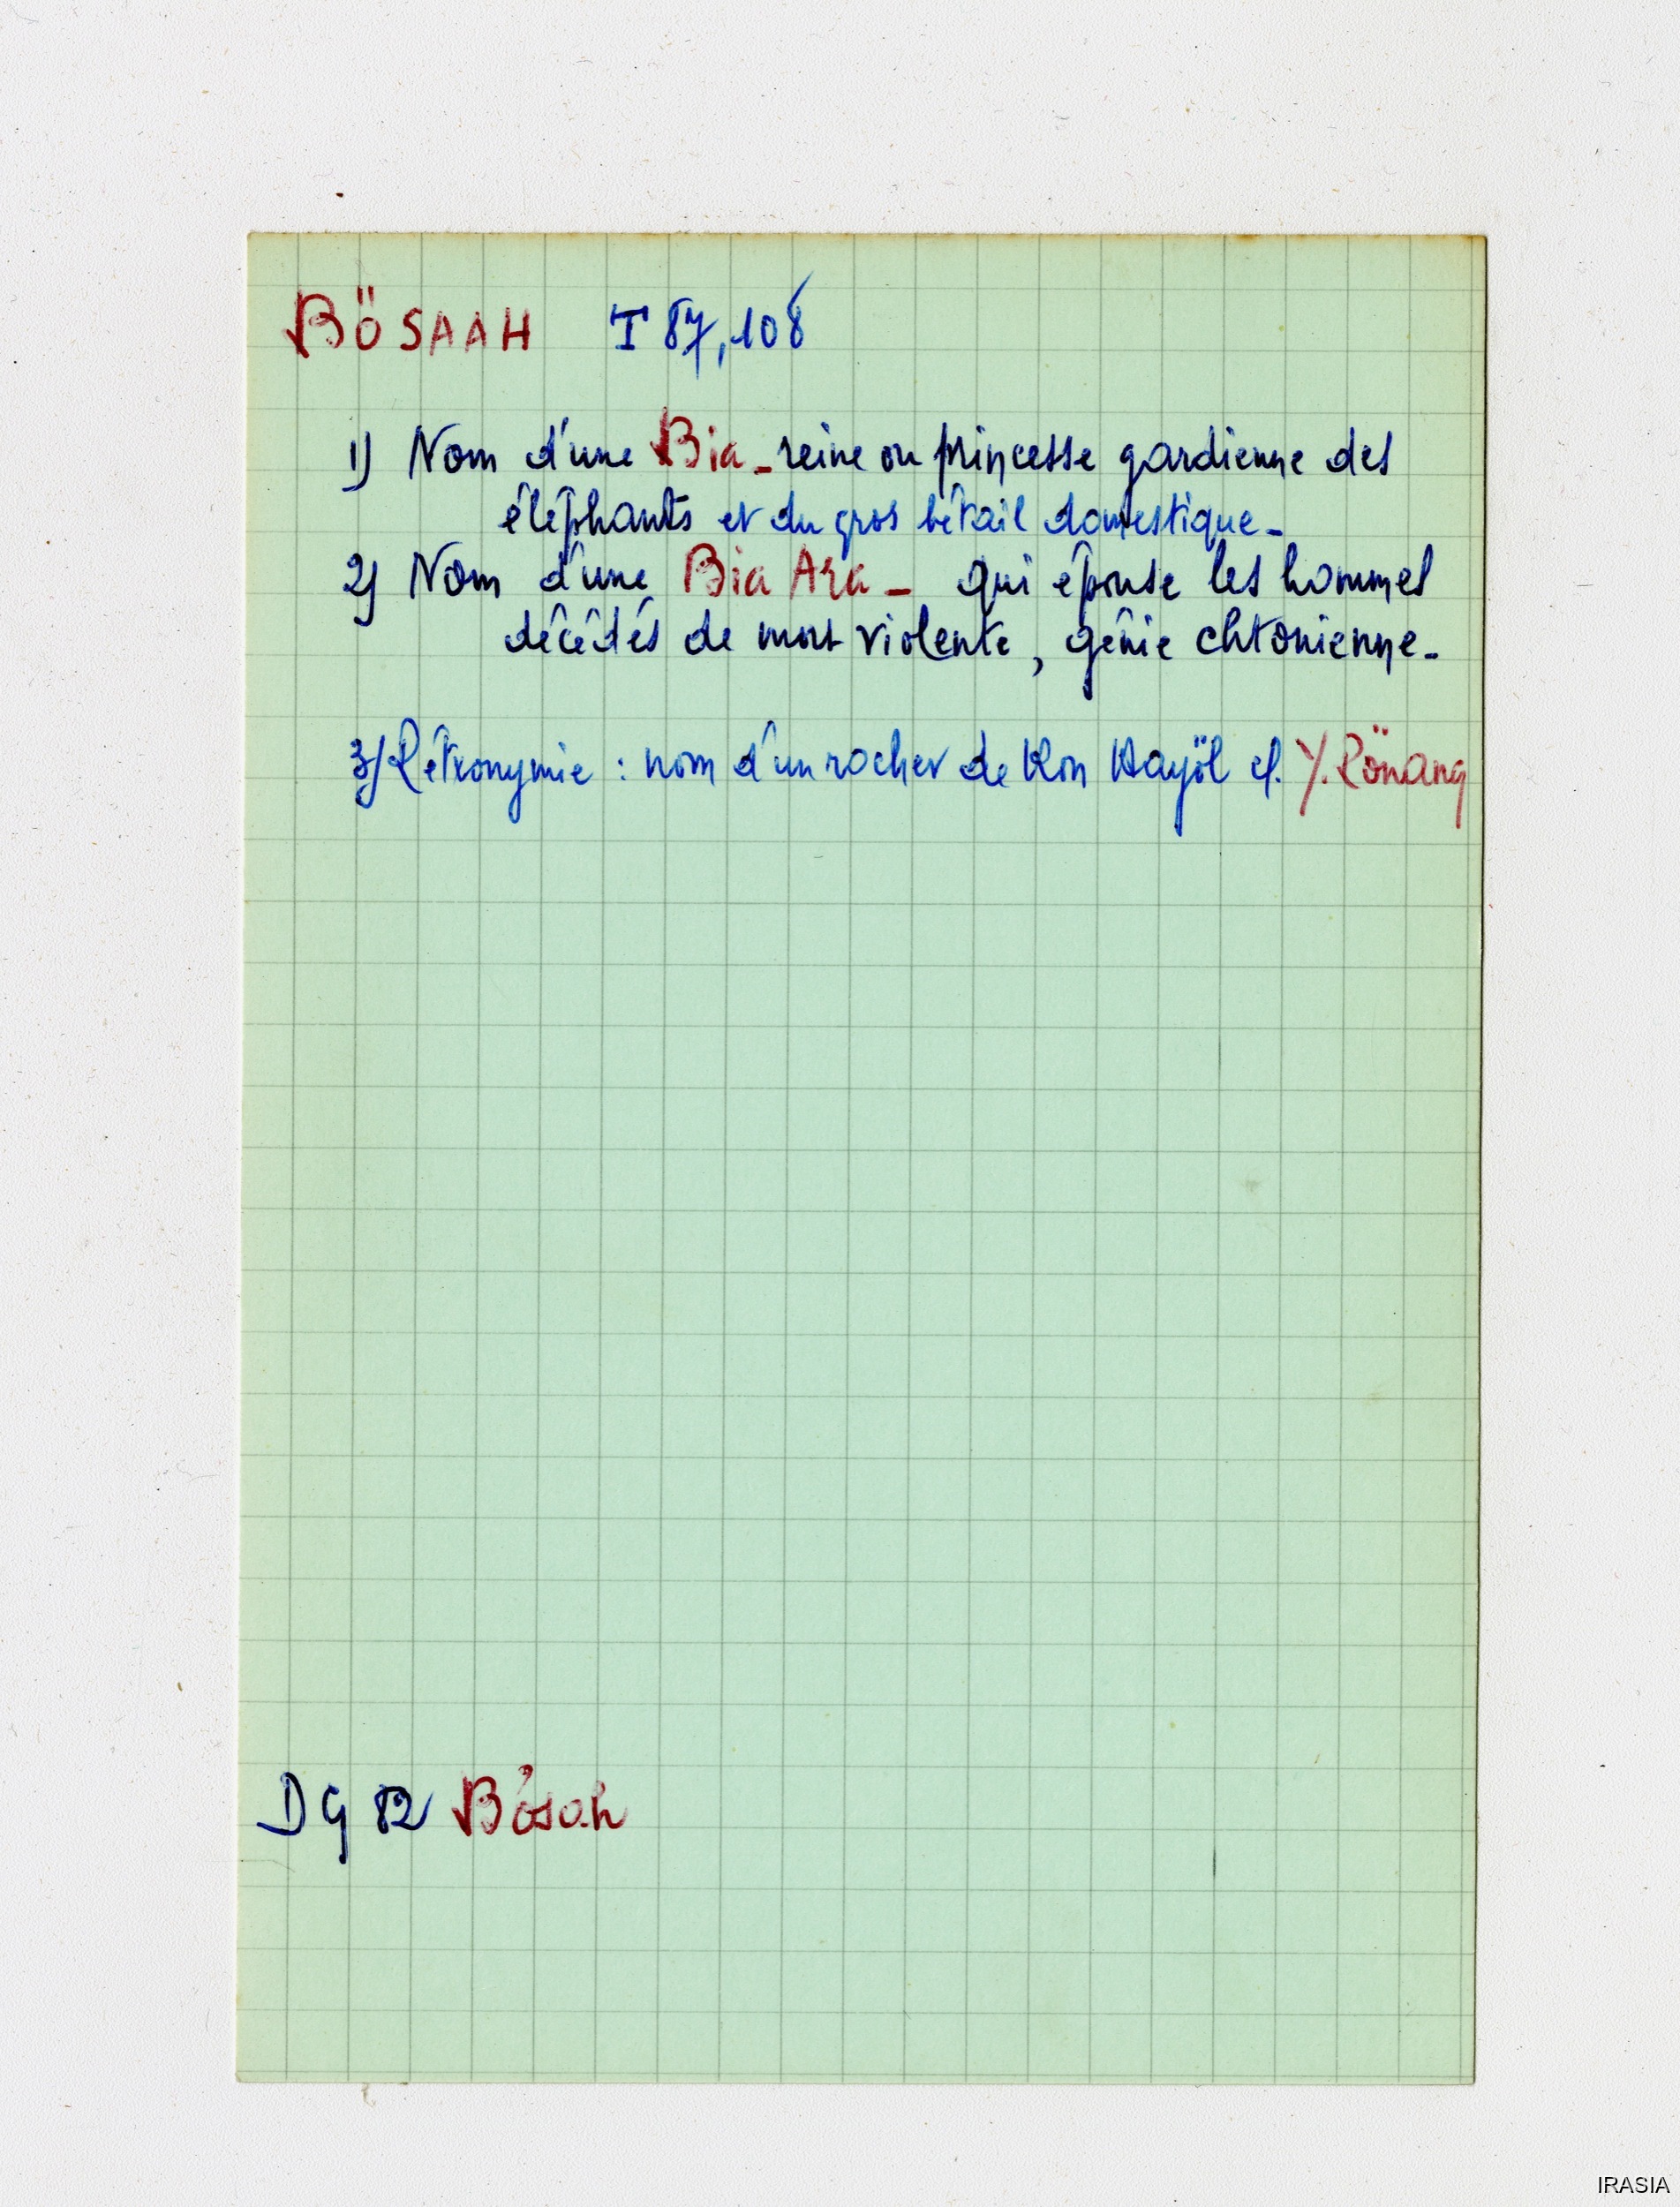 BÖSAAH T 87, 108
1) Nom d'une Bia - reine ou princesse gardienne des
éléphants et du gros bétail domestique -
2) Nom d'une Bia Ara - qui épouse les hommes
décédés de mort violente, génie chtonienne -
3) Pétronymie : nom d'un rocher de Kon Hayöl cf. Y. Rönang
DG 82 Bösah
IRASIA